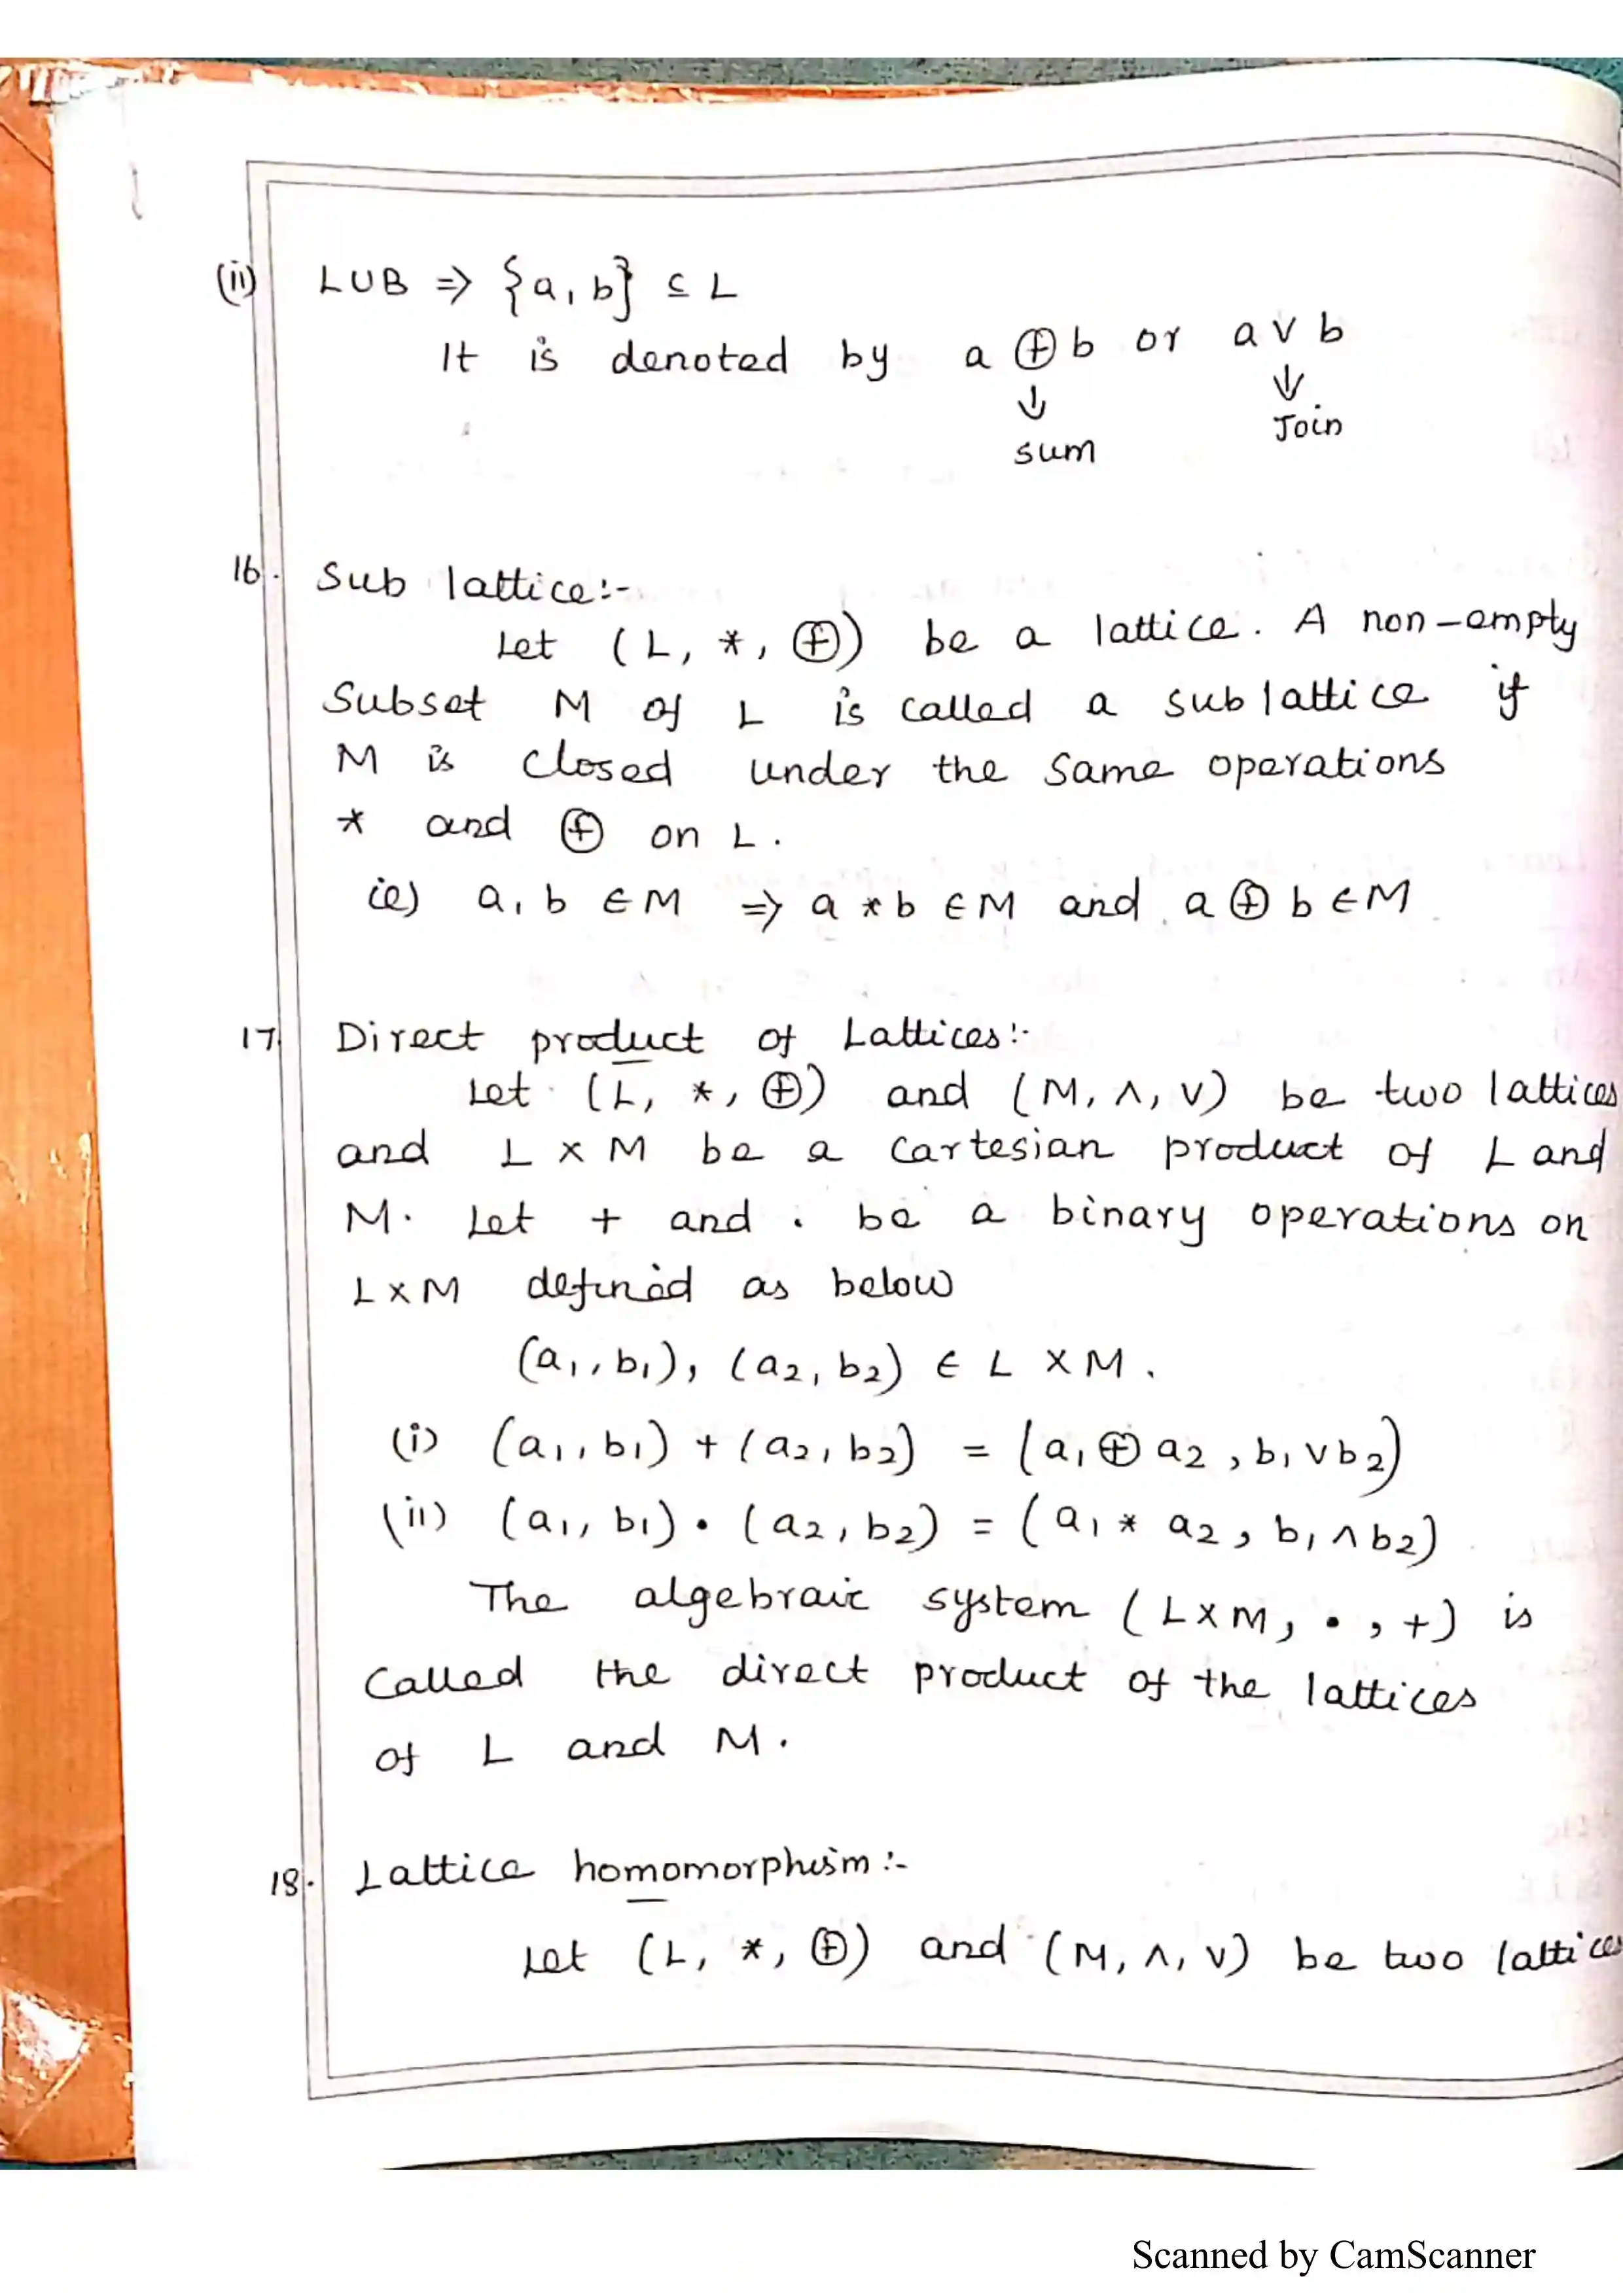 (ii) LUB => {a, b} ⊆ L
It is denoted by a ⊕ b or a ∨ b
↓ ↓
sum Join
16. Sub lattice:-
Let (L, *, ⊕) be a lattice. A non-empty
Subset M of L is called a sublattice if
M is closed under the same operations
* and ⊕ on L.
ie) a, b ∈ M => a * b ∈ M and a ⊕ b ∈ M
17. Direct product of Lattices:-
Let (L, *, ⊕) and (M, ∧, ∨) be two lattices
and L × M be a Cartesian product of L and
M. Let + and . be a binary operations on
L×M defined as below
(a₁, b₁), (a₂, b₂) ∈ L × M.
(i) (a₁, b₁) + (a₂, b₂) = (a₁ ⊕ a₂, b₁ ∨ b₂)
(ii) (a₁, b₁) • (a₂, b₂) = (a₁ * a₂, b₁ ∧ b₂)
The algebraic system (L×M, •, +) is
Called the direct product of the lattices
of L and M.
18. Lattice homomorphism:-
Let (L, *, ⊕) and (M, ∧, ∨) be two lattices
Scanned by CamScanner